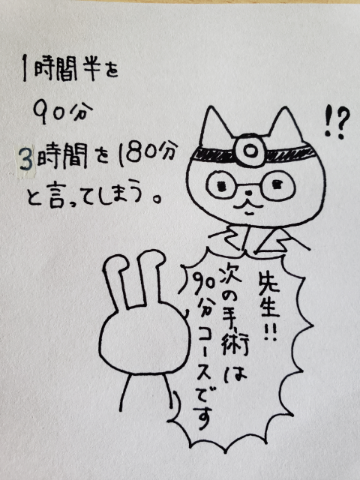 1時間半を
90分
3時間を180分
と言ってしまう。
!?
先生!!
次の手術は
90分コースです